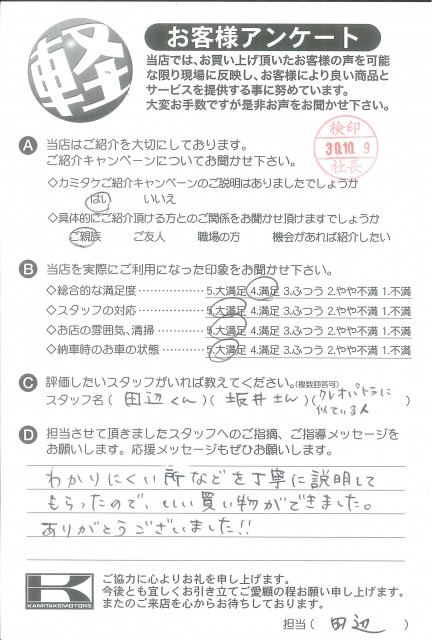 軽
お客様アンケート
当店では、お買い上げ頂いたお客様の声を可能
な限り現場に反映し、お客様により良い商品と
サービスを提供する事に努めています。
大変お手数ですが是非お声をお聞かせ下さい。
検印
30.10.9
社長
A 当店はご紹介を大切にしております。
ご紹介キャンペーンについてお聞かせ下さい。
◇カミタケご紹介キャンペーンのご説明はありましたでしょうか
はい いいえ
◇具体的にご紹介頂ける方とのご関係をお聞かせ頂けますでしょうか
ご親族 ご友人 職場の方 機会があれば紹介したい
B 当店を実際にご利用になった印象をお聞かせ下さい。
◇総合的な満足度 ………………… 5.大満足 4.満足 3.ふつう 2.やや不満 1.不満
◇スタッフの対応 ………………… 5.大満足 4.満足 3.ふつう 2.やや不満 1.不満
◇お店の雰囲気、清掃 …………… 5.大満足 4.満足 3.ふつう 2.やや不満 1.不満
◇納車時のお車の状態 …………… 5.大満足 4.満足 3.ふつう 2.やや不満 1.不満
C 評価したいスタッフがいれば教えてください。(複数回答可)
スタッフ名 ( 田辺くん ) ( 坂井さん ) ( クレオパトラに
似ている人 )
D 担当させて頂きましたスタッフへのご指摘、ご指導メッセージを
お願いします。応援メッセージもぜひお願いします。
わかりにくい所などを丁寧に説明して
もらったので、いい買い物ができました。
ありがとうございました!!
K
KAMITAKEMOTORS
ご協力に心よりお礼を申し上げます。
今後とも宜しくお引き立てご愛顧の程お願い申し上げます。
またのご来店を心からお待ちしております。
担当 ( 田辺 )